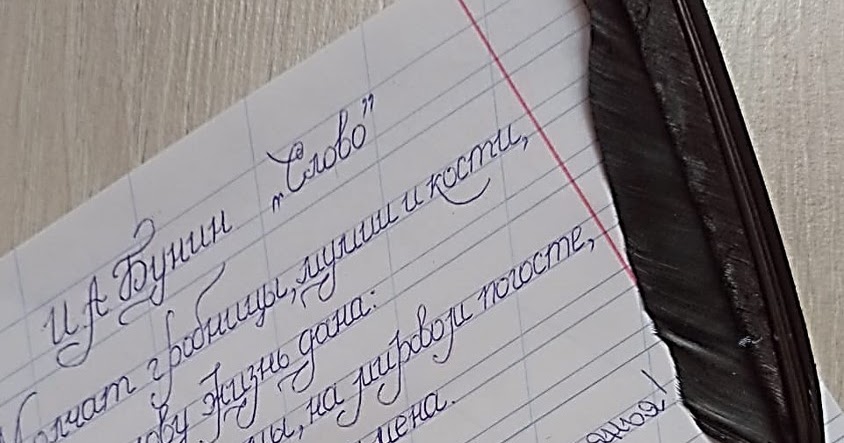 И А Бунин „Слово”
Молчат гробницы, мумии и кости,
жизнь дана:
на мировом погосте,